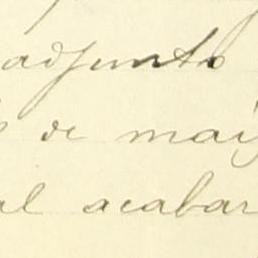 adjunto
de may
al acabar